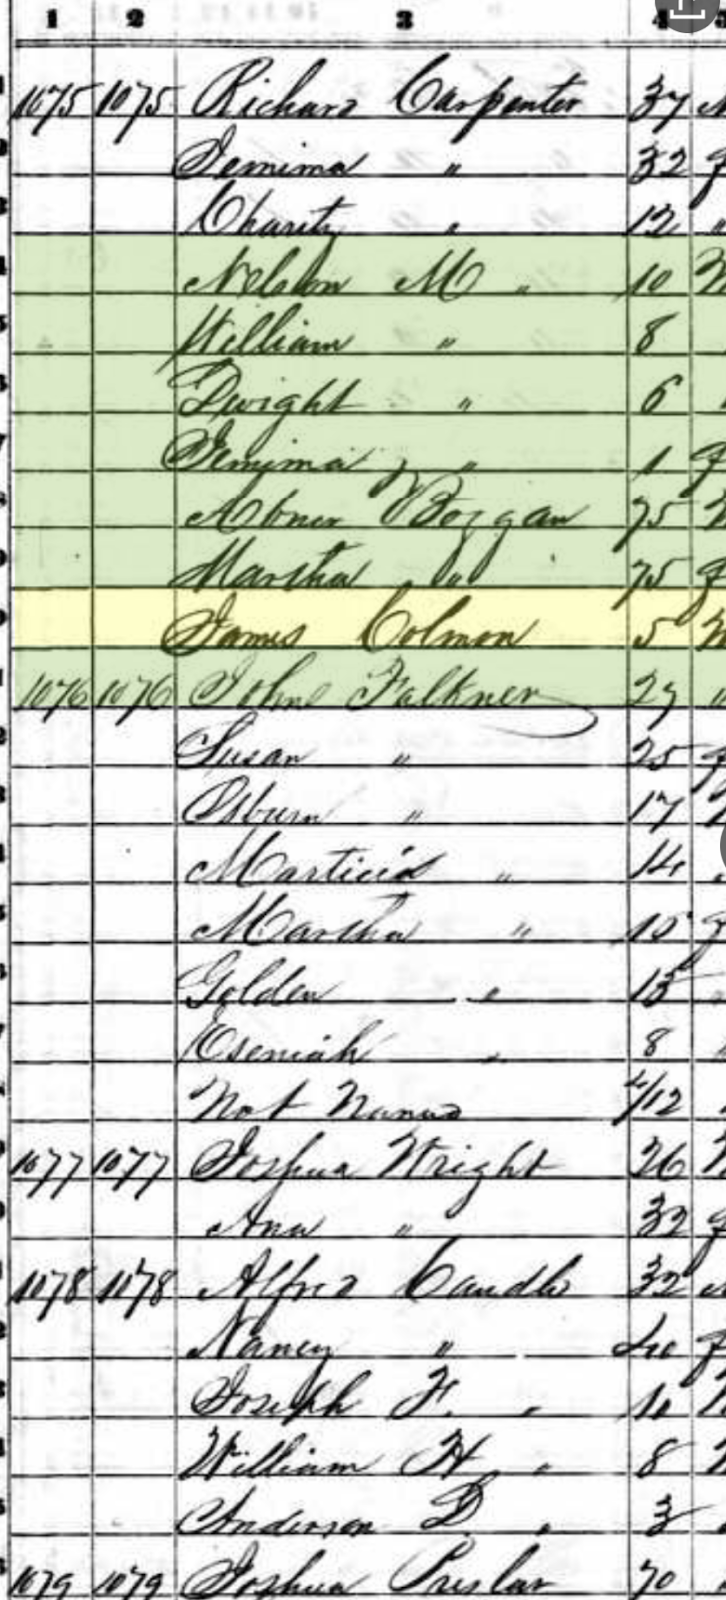 1 2 3 4
1075 1075 Richard Carpenter 37
Jemima " 32 f
Charity " 12 "
Nelson M " 10 M
William " 8
Dwight " 6
Jemima " 1 f
Abner Boggan 75 M
Martha " 75 f
James Colmon 5 M
1076 1076 John Falkner 27
Susan " 25 f
Osburn " 17
" 14
Martha " 15 f
Golden " 13
" 8
Not Named /12
1077 1077 Joshua Wright 26 M
Ann " 32 f
1078 1078 Alfred Caudle 32
Nancy " 40 f
Joseph F. " 10
William H " 8 M
Anderson D " 3
1079 1079 Joshua Preslar 70